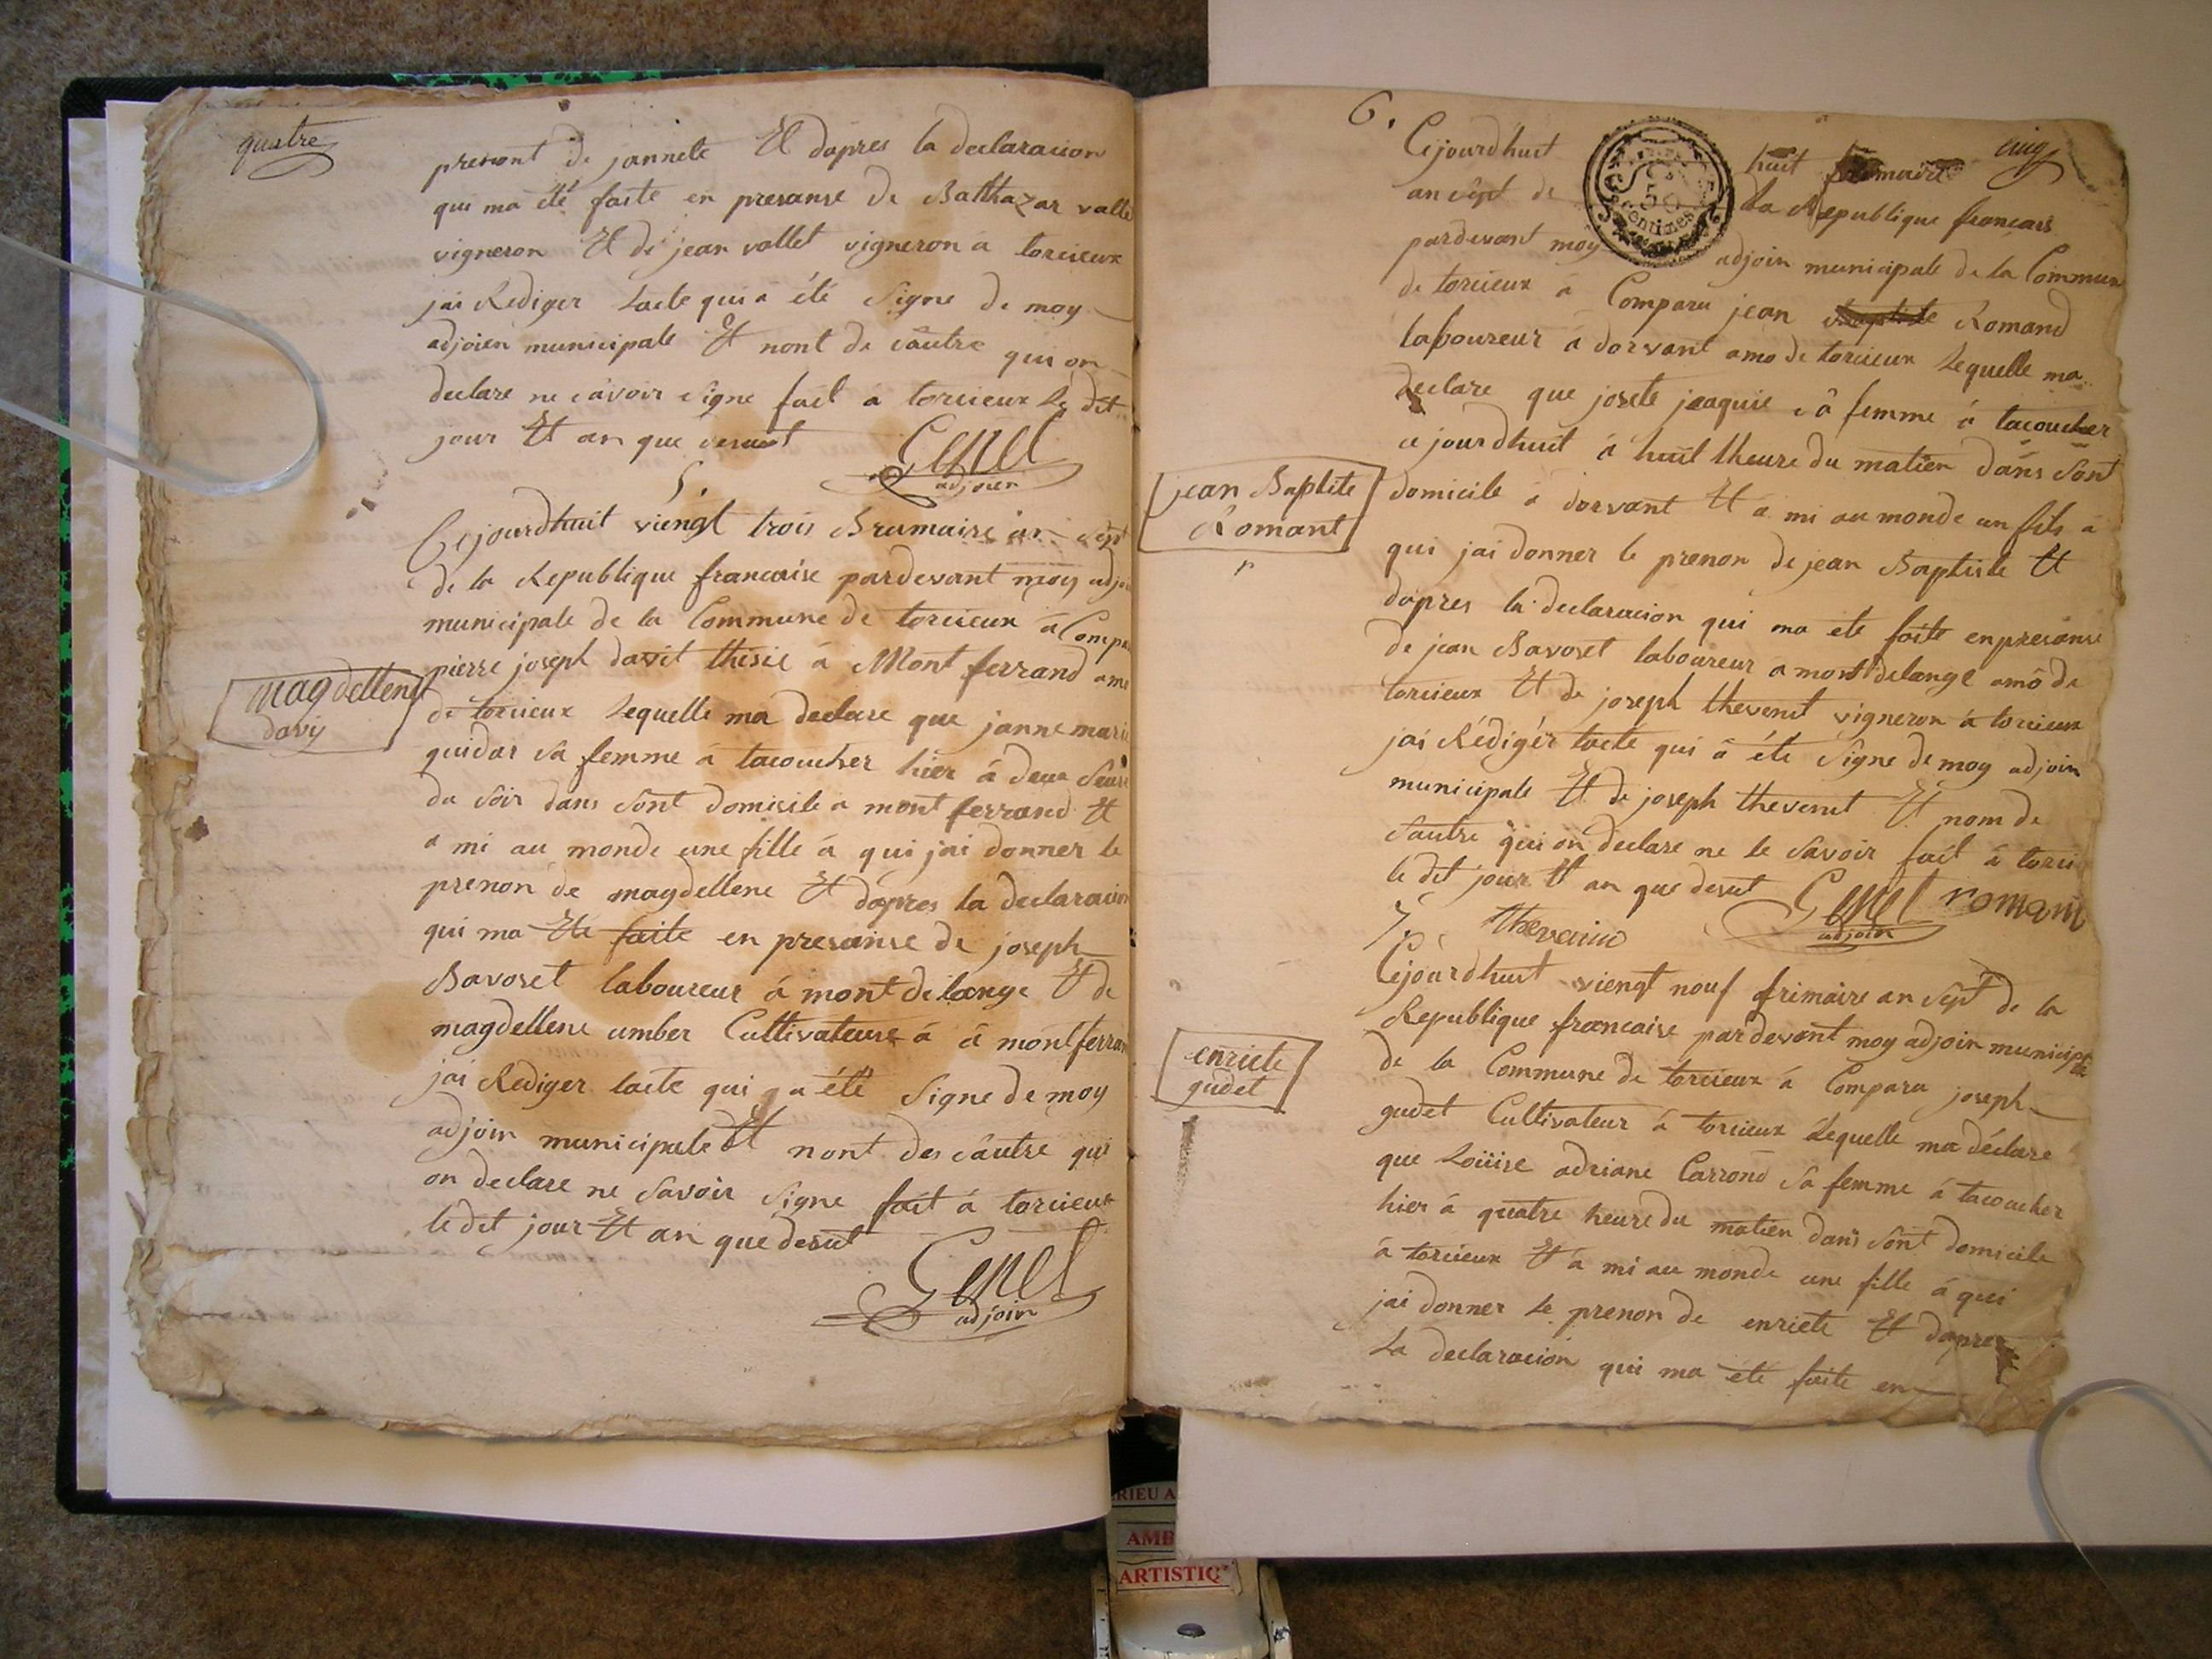 quatre
prenont de jannete Et dapres la declaracion
qui ma été faite en presanse de Balthazar vallet
vigneron Et de jean vallet vigneron a torcieux
jai Rediger lacte qui a été Signe de moy
adjoien municipale Et nont de cautre qui on
declare ne savoir signe fait a torcieux Le dit
jour Et an que desut
Genel
adjoien
5.
Cejourdhuit viengt trois Brumaire an sept
de la Republique francaise pardevant moy adjoi
municipale de la Commune de torcieux à Compa
pierre joseph davit à Mont ferrand amo
magdellene
davy
de torcieux Lequelle ma declare que janne marie
guidar sa femme à tacoucher hier à deux
du soir dans sont domicile a mont ferrand Et
a mi au monde une fille à qui jai donner le
prenon de magdellene Et dapres la declaracion
qui ma Eté faite en presanse de joseph
Bavoset laboureur à mont de lange Et de
magdellene umber Cultivateure à à montferran
jai Rediger lacte qui a été Signe de moy
adjoin municipale Et nont des cautre qui
on declare ne Savoir Signe fait à torcieux
le dit jour Et an que desut
Genel
adjoin
6.
cinq
Cejourdhuit huit frimaire
50 centimes
an sept de la Republique francais
pardevant moy adjoin municipale de la Commune
de torcieux à Comparu jean Romand
laboureur à dorvant amo de torcieux Lequelle ma
declare que josete jeaquie sâ femme à tacoucher
ce jourdhuit à huit theure du matien dans Sont
jean Baptiste
Romant
domicile à dorvant Et a mi au monde un fils a
qui jai donner le prenon de jean Baptiste Et
dapres la declaracion qui ma ete faite enpresanse
de jean Bavoset laboureur a mont delange amô de
torcieux Et de joseph thevenet vigneron à torcieux
jai Rédigér lacte qui à été Signe de moy adjoin
municipale Et de joseph thevenet Et nom de
Sautre qui on declare ne le Savoir fait à torci
le dit jour Et an que desut Genel romant
adjoin
7.
Cejourdhuit viengt nouf frimaire an Sept de la
Republique francaise pardevant moy adjoin municipale
enriete
gudet
de la Commune de torcieux à Compara joseph
gudet Cultivateur à torcieux Lequelle ma déclare
que Loüise adriane Carrond Sa femme à tacoucher
hier à quatre heure du matien dans Sont domicile
à torcieux Et à mi au monde une fille à qui
jai donner Le prenon de enriete Et dapres
La declaracion qui ma été faite en
RIEU A
AMB
ARTISTIQ